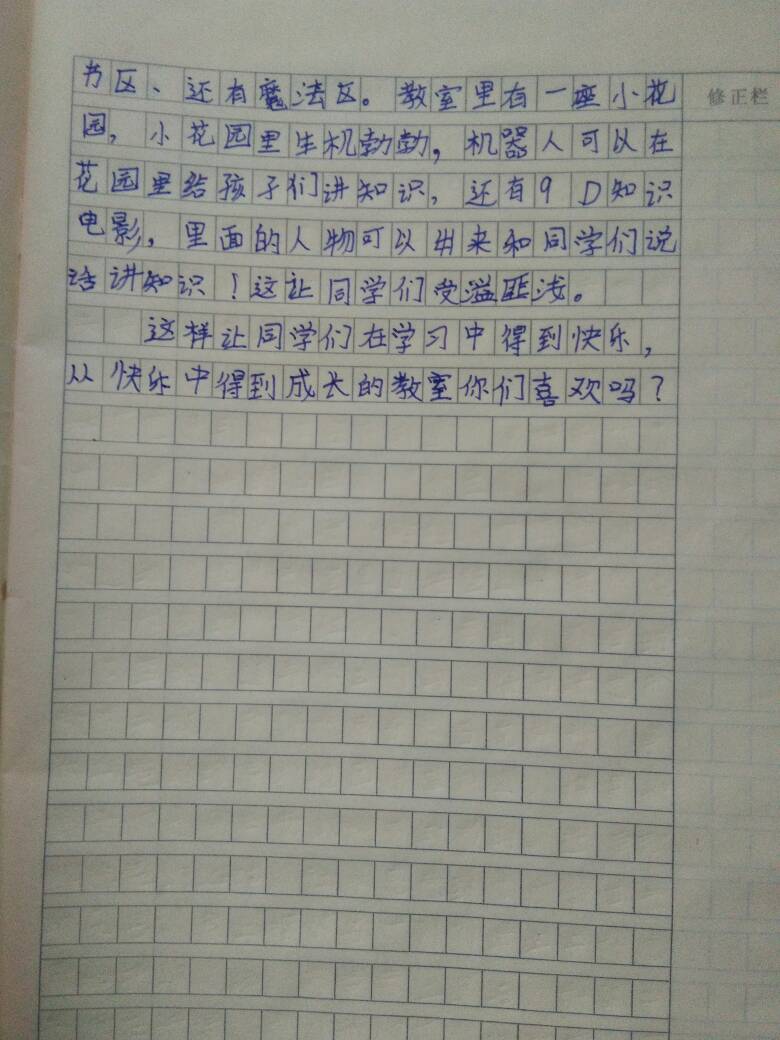 书区、还有魔法区。教室里有一座小花
园，小花园里生机勃勃，机器人可以在
花园里给孩子们讲知识，还有9D知识
电影，里面的人物可以出来和同学们说
话讲知识！这让同学们受益匪浅。
这样让同学们在学习中得到快乐，
从快乐中得到成长的教室你们喜欢吗？
修正栏